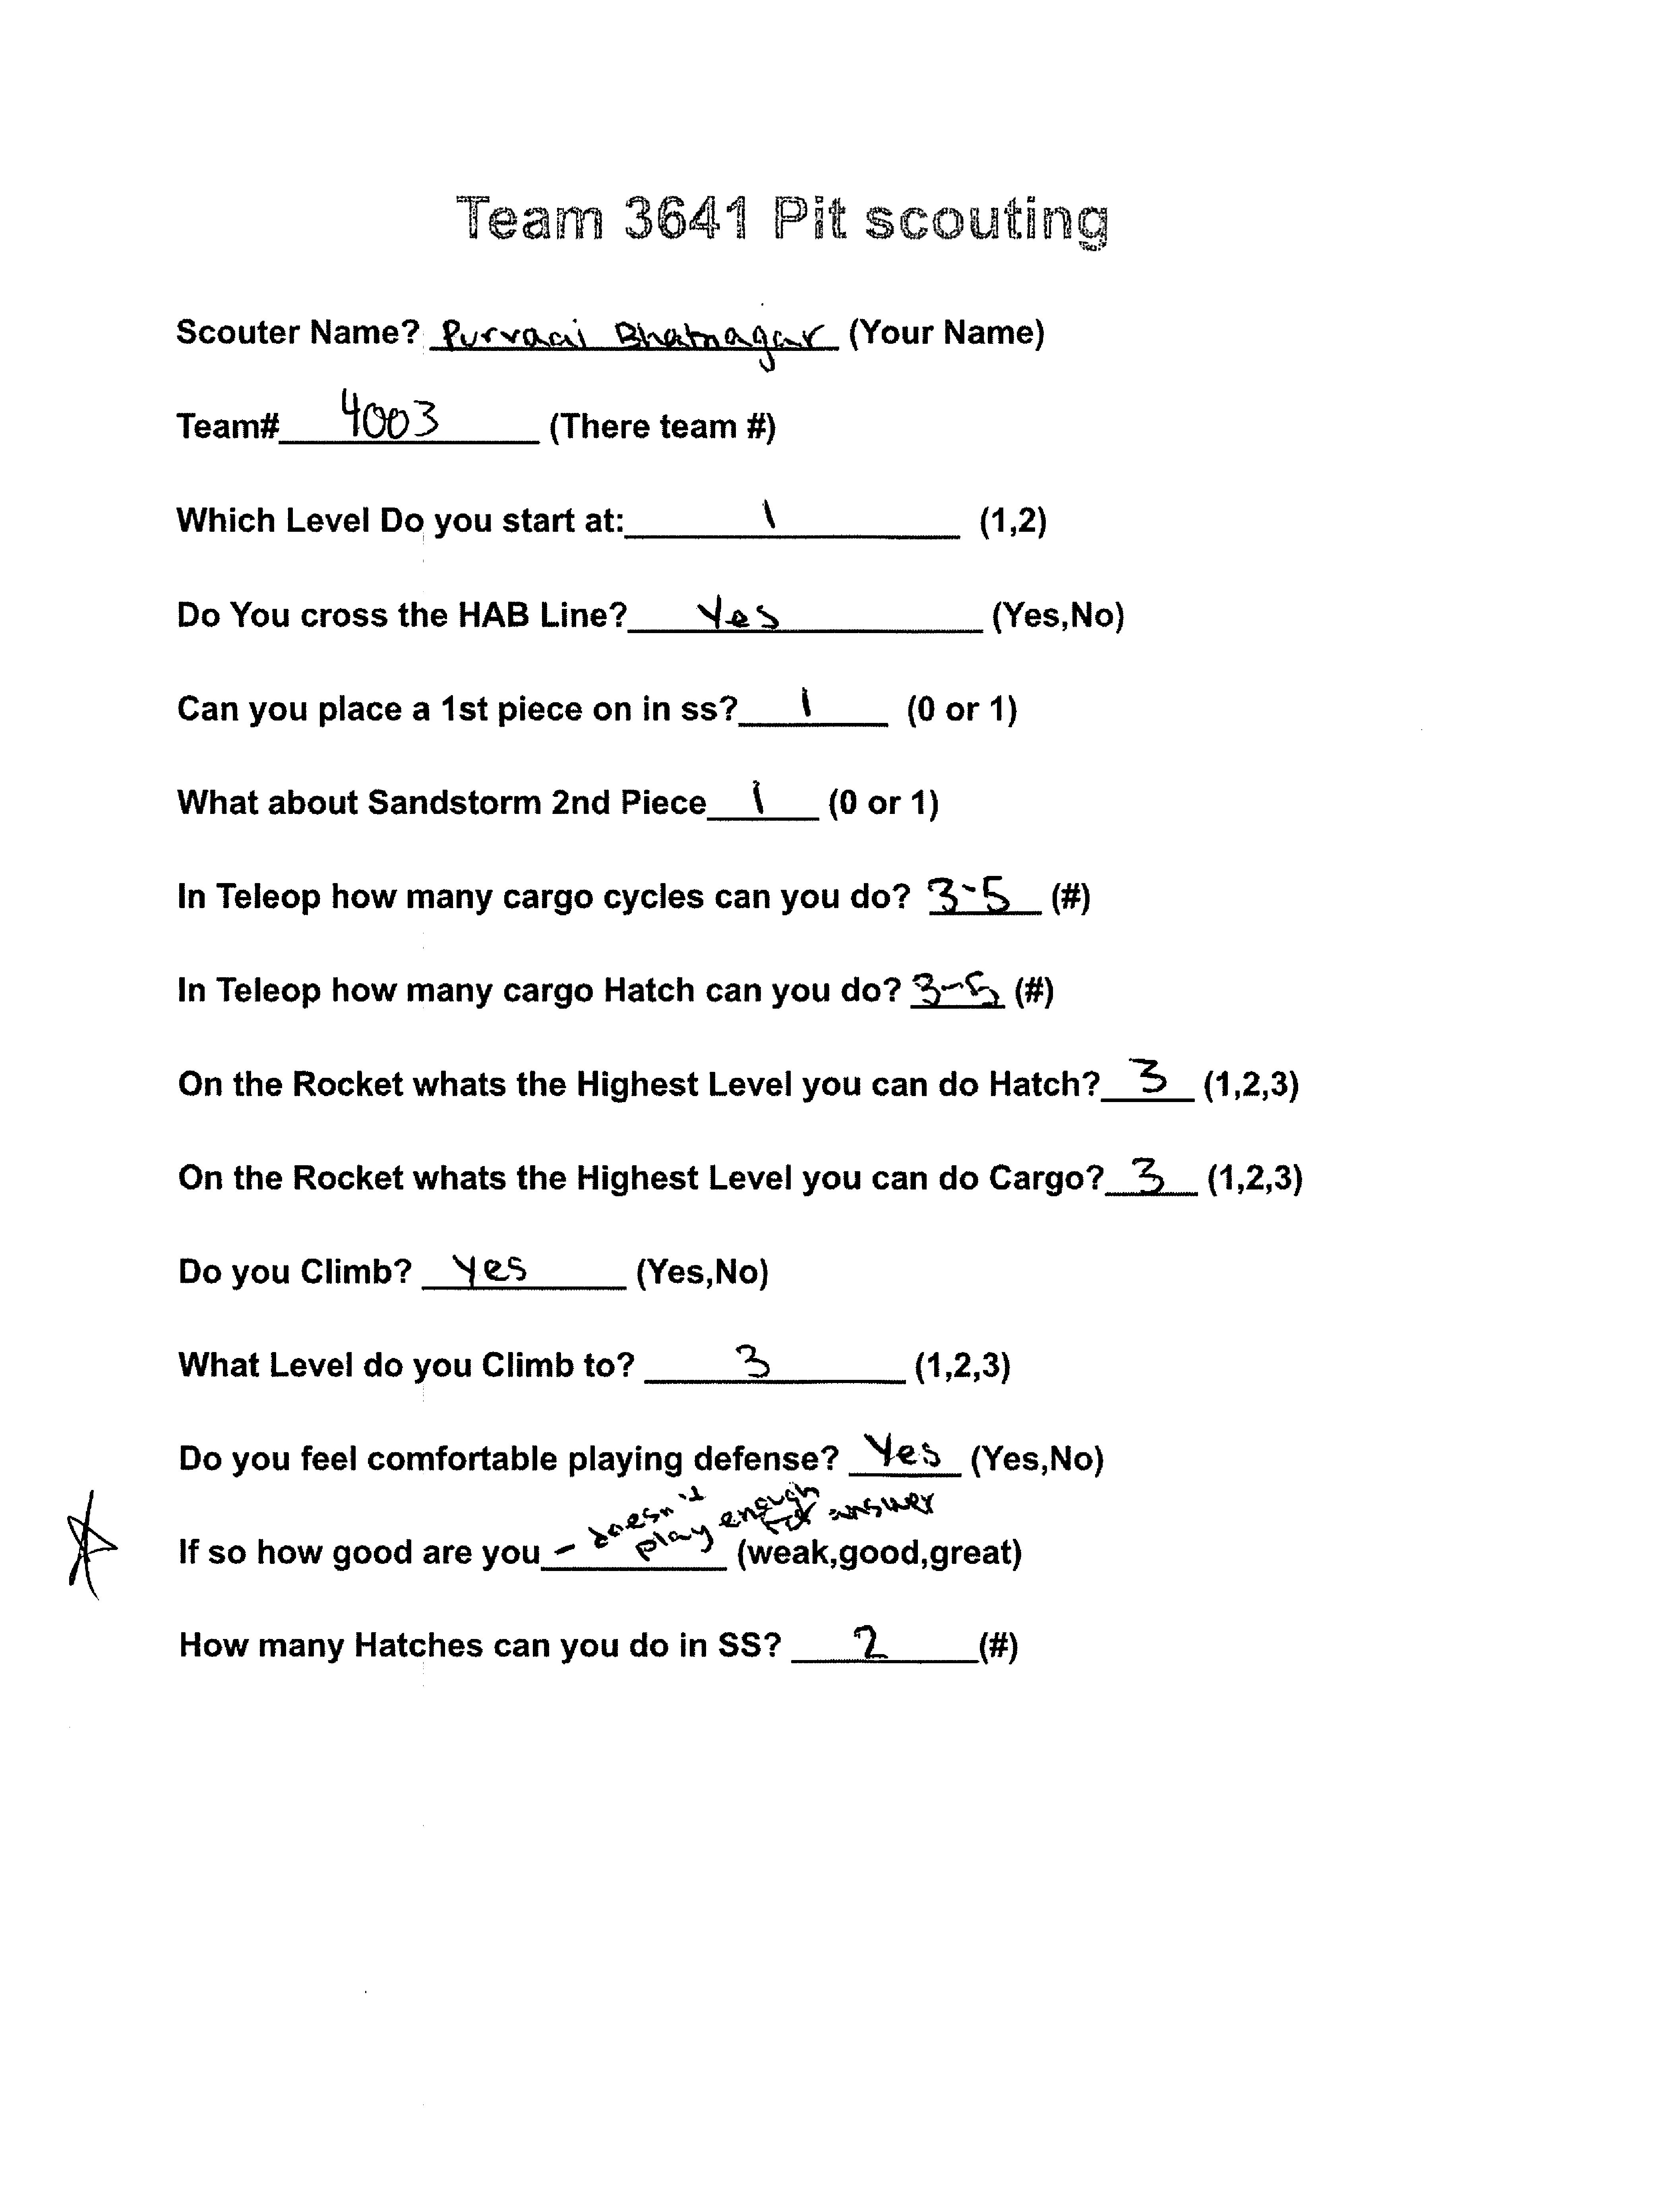 Team 3641 Pit scouting
Scouter Name? Purvaai Bhatnagar (Your Name)
Team# 4003 (There team #)
Which Level Do you start at: 1 (1,2)
Do You cross the HAB Line? Yes (Yes,No)
Can you place a 1st piece on in ss? 1 (0 or 1)
What about Sandstorm 2nd Piece 1 (0 or 1)
In Teleop how many cargo cycles can you do? 3-5 (#)
In Teleop how many cargo Hatch can you do? 3-5 (#)
On the Rocket whats the Highest Level you can do Hatch? 3 (1,2,3)
On the Rocket whats the Highest Level you can do Cargo? 3 (1,2,3)
Do you Climb? Yes (Yes,No)
What Level do you Climb to? 3 (1,2,3)
Do you feel comfortable playing defense? Yes (Yes,No)
If so how good are you - doesn't play enough to answer (weak,good,great)
How many Hatches can you do in SS? 2 (#)